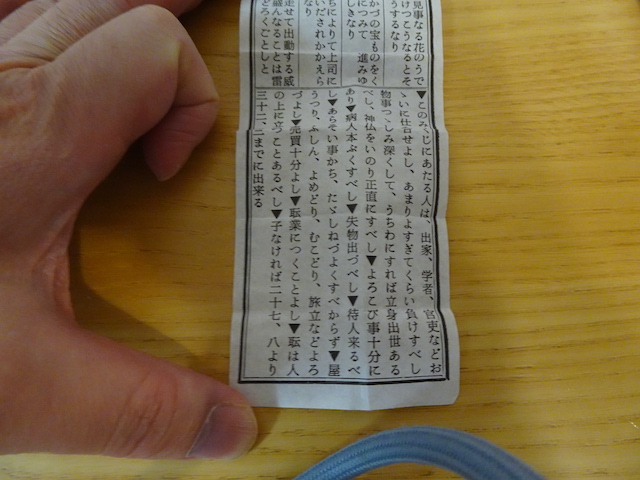 見事なる花のうで
けつこうなるとそ
うするなり
かづの宝ものをく
につみて 進みゆ
しきなり
ちによりて上司に
いだされかかえら
なり
走せて出動する威
盛んなることは雷
どろくごとしと
▼このみくじにあたる人は、出家、学者、官吏などお
ゝいに仕合せよし、あまりよすぎてくらい負けすべし
物事つゝしみ深くして、うちわにすれば立身出世ある
べし、神仏をいのり正直にすべし▼よろこび事十分に
あり▼病人本ぷくすべし▼失物出づべし▼待人来るべ
し▼あらそい事かち、たゞしねづよくすべからず▼屋
うつり、ふしん、よめどり、むこどり、旅立などよろ
づよし▼売買十分よし▼耺業につくことよし▼耺は人
の上に立つことあるべし▼子なければ二十七、八より
三十二、三までに出来る